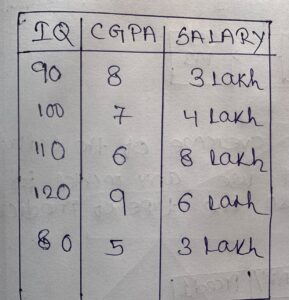 IQ CGPA SALARY
90 8 3 Lakh
100 7 4 Lakh
110 6 8 Lakh
120 9 6 Lakh
80 5 3 Lakh